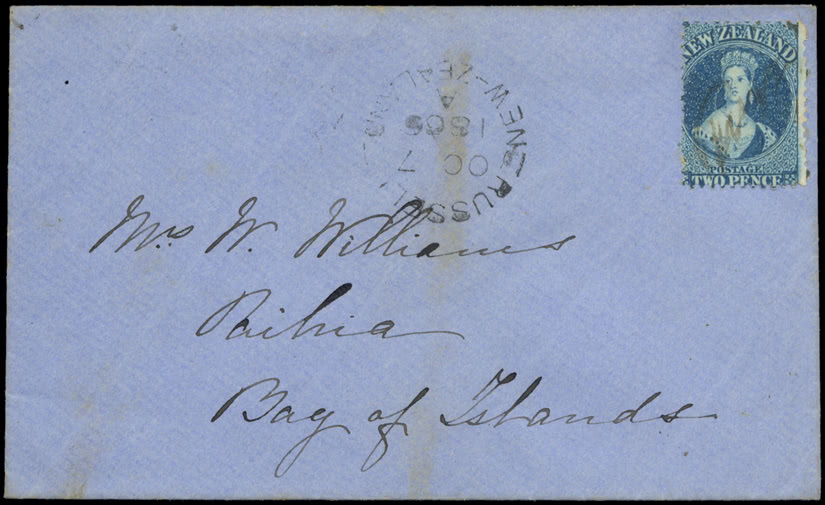 NEW ZEALAND
POSTAGE
TWO PENCE
RUSSELL
NEW-ZEALAND
A
OC 7
Mrs W. Williams
Paihia
Bay of Islands